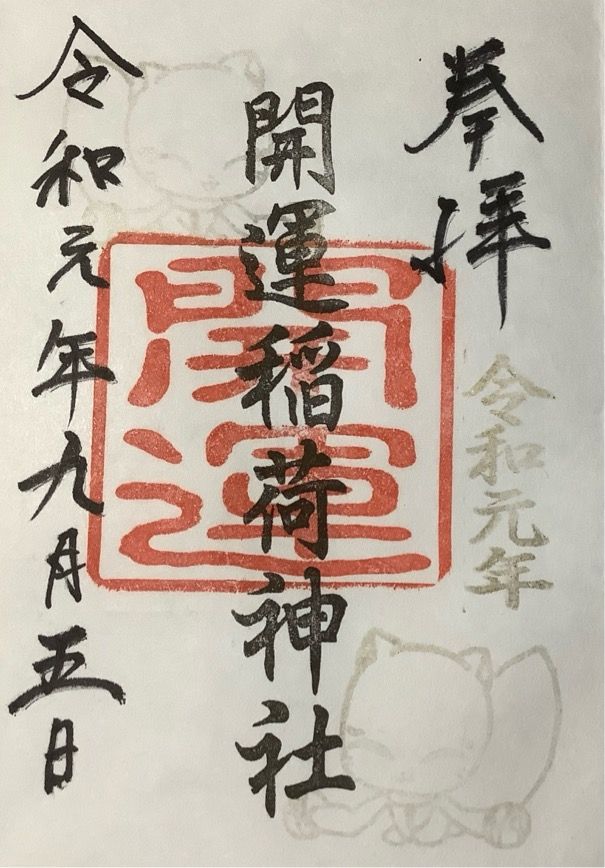 奉拝
令和元年
開運稲荷神社
開運
令和元年九月五日